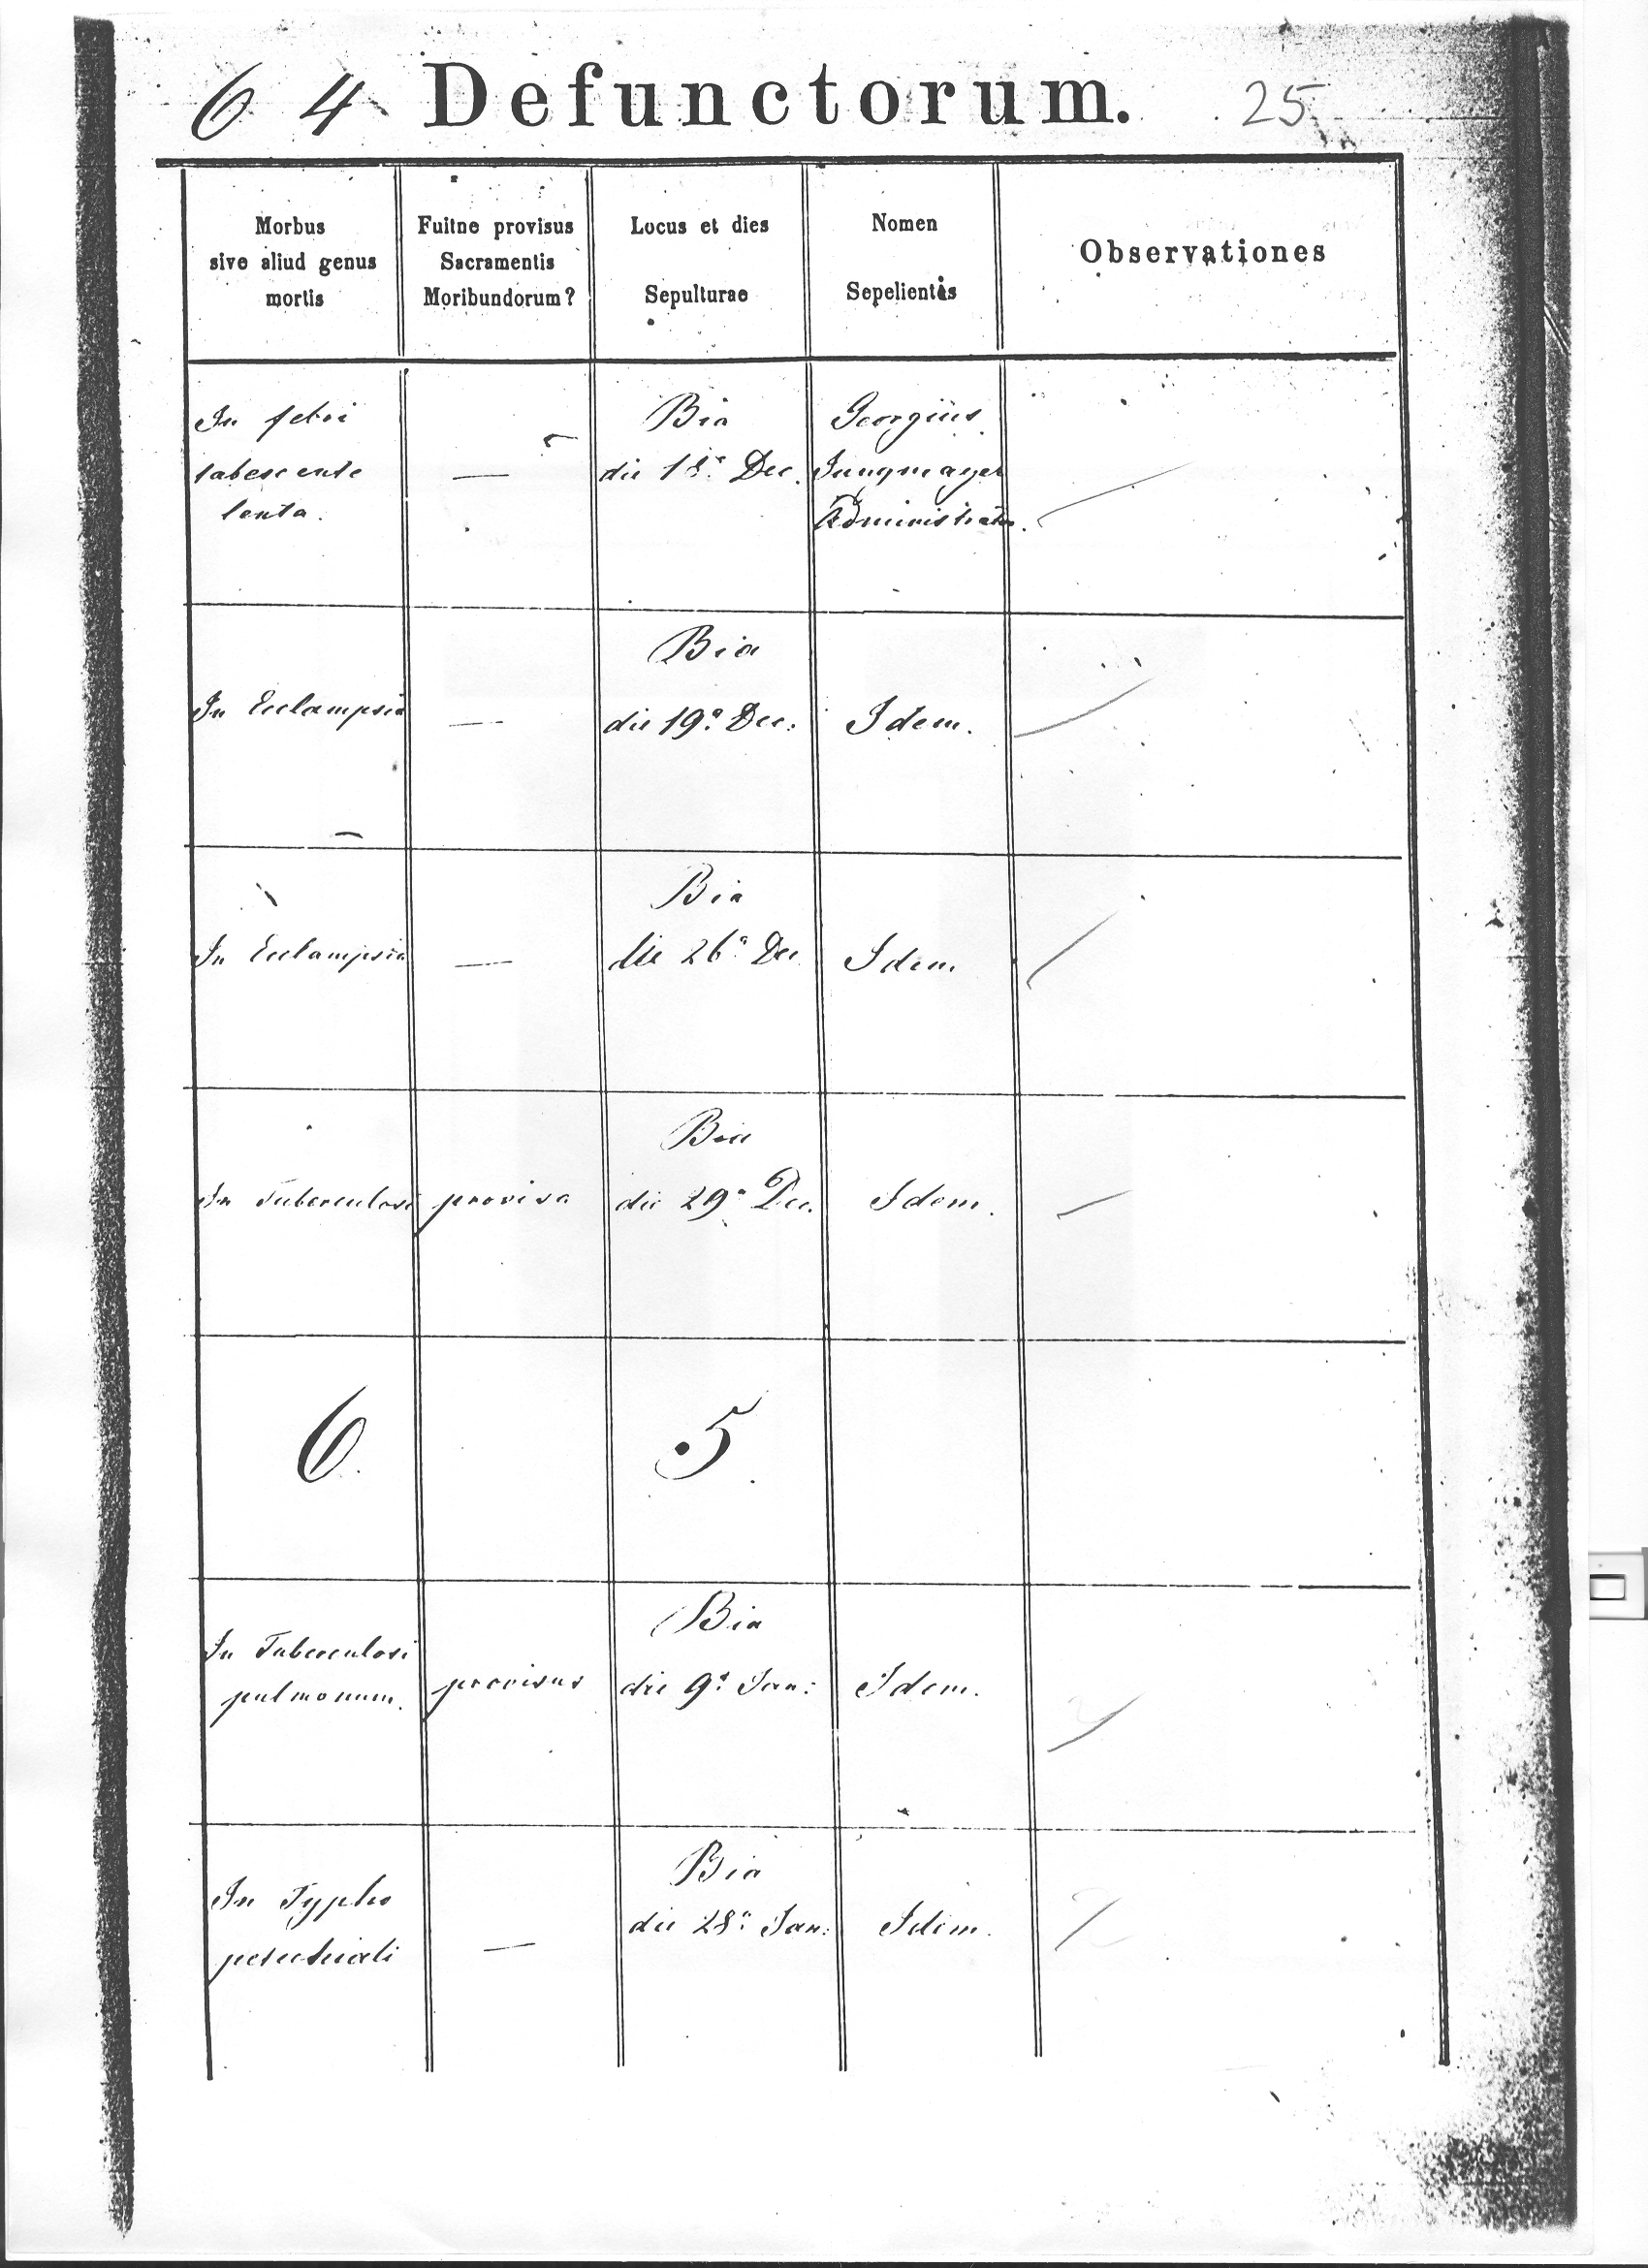 6 4 Defunctorum. 25
Morbus
sive aliud genus
mortis
Fuitne provisus
Sacramentis
Moribundorum?
Locus et dies
Sepulturae
Nomen
Sepelientis
Observationes
In febri
tabescente
lenta.
—
Bia
die 18ª Dec.
Georgius
Jungmayer
Administrator.
In Ecclampsia
—
Bia
die 19ª Dec:
Idem.
In Ecclampsia
—
Bia
die 26ª Dec
Idem
In Tuberculosi
provisa
Bia
die 29ª Dec.
Idem.
6.
5.
In Tuberculosi
pulmonum.
provisus
Bia
die 9ª Jan:
Idem.
In Typho
petechiali
—
Bia
die 28ª Jan:
Idem.